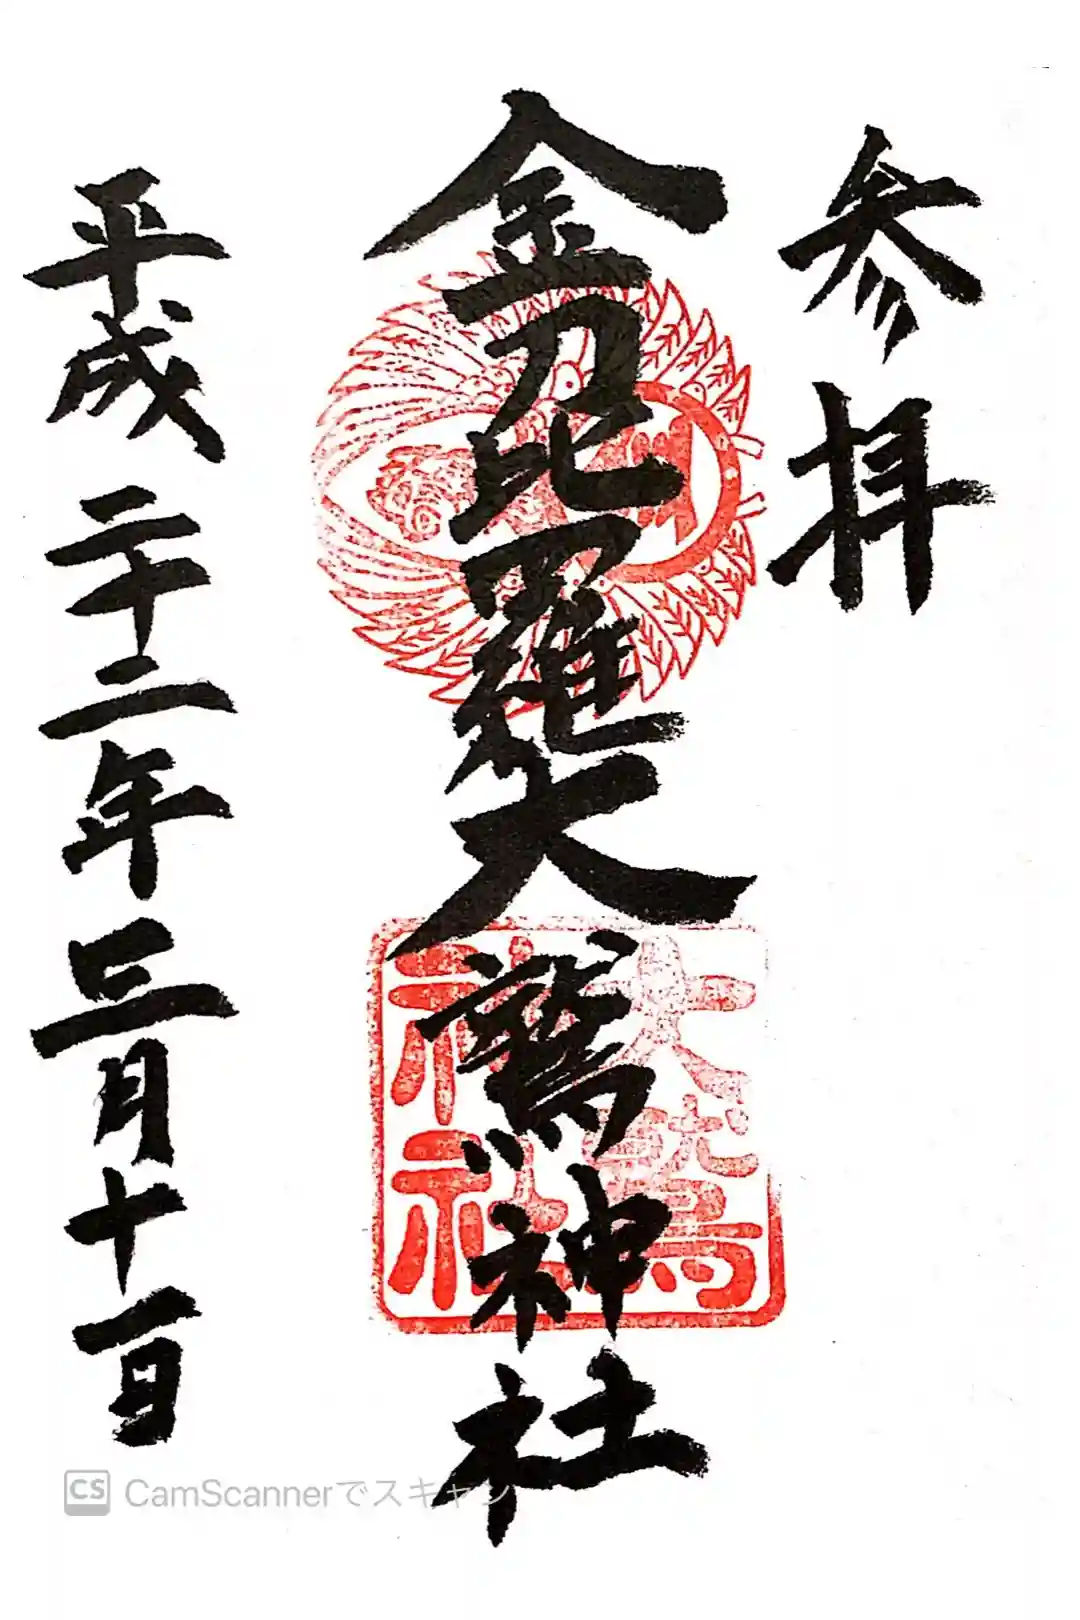 参拝
金刀比羅大鷲神社
大鷲
神社
平成二十二年三月十一日
CS CamScannerでスキャン